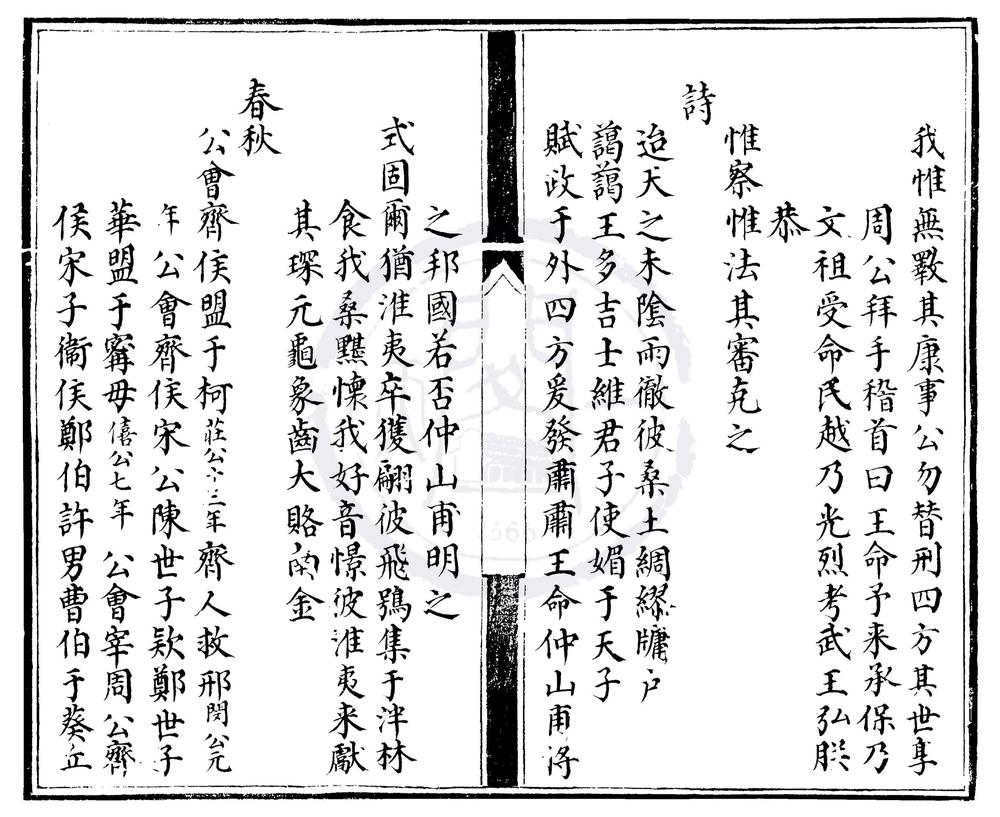 我惟無斁其康事公勿替刑四方其世享
周公拜手稽首曰王命予来承保乃
文祖受命民越乃光烈考武王弘朕
恭
惟察惟法其審克之
詩
迨天之未陰雨徹彼桑土綢繆牖户
藹藹王多吉士維君子使媚于天子
賦政于外四方爰發肅肅王命仲山甫将
之邦國若否仲山甫明之
式固爾猶淮夷卒獲翩彼飛鴞集于泮林
食我桑黮懐我好音憬彼淮夷来獻
其琛元龜象齒大賂南金
春秋
公會齊侯盟于柯莊公十三年齊人救邢閔公元
年公會齊侯宋公陳世子款鄭世子
華盟于甯毋僖公七年公會宰周公齊
侯宋子衞侯鄭伯許男曹伯于葵丘